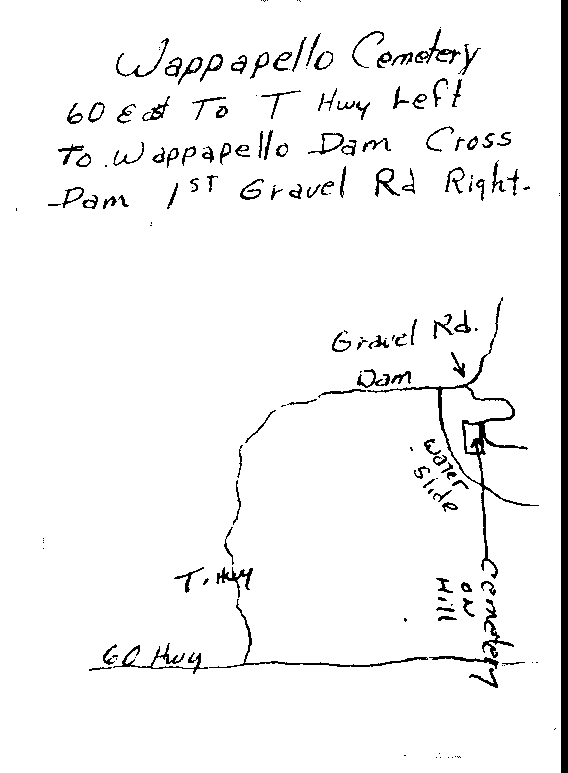 Wappapello Cemetery
60 East To T Hwy Left
To Wappapello Dam Cross
Dam 1ST Gravel Rd Right.
Gravel Rd.
Dam
Water
Slide
T. Hwy
Cemetery
on
Hill
60 Hwy